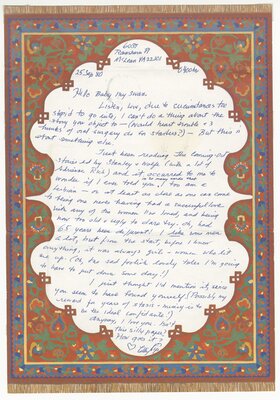 McLean VA 22101
25 Sep 80
Hello Baby my Swan.
Listen, love, due to circumstances too
stupid to go into, I can't do a thing about the
story you object to — (would heart trouble + 3
months of oral surgery do for starters?) — But this is
about something else.
I just been reading The Coming Out
Stories (ed by Stanley & Wolfe (with of
Adrienne Rich) and it occurred to me to
wonder if I ever told you I too am a
Lesbian — or at least as close as one can come
to being one never having had a successful love
with any of the women I've loved, and being
now too old & ugly to dare try. Oh, had
65 years been different! I like some men
a lot, but from the start, before I knew
anything, it was always girls + women who lit
me up. (Oh, the sad, foolish, lovely tales I'm going
to have to put down some day!!)
I just thought I'd mention it, since
you seem to have found yourself. (Possibly my
reward for years of stasis + misery is to
be the ideal confidante!)
Anyway, I love you. Isn't
this silly paper?
How goes it?